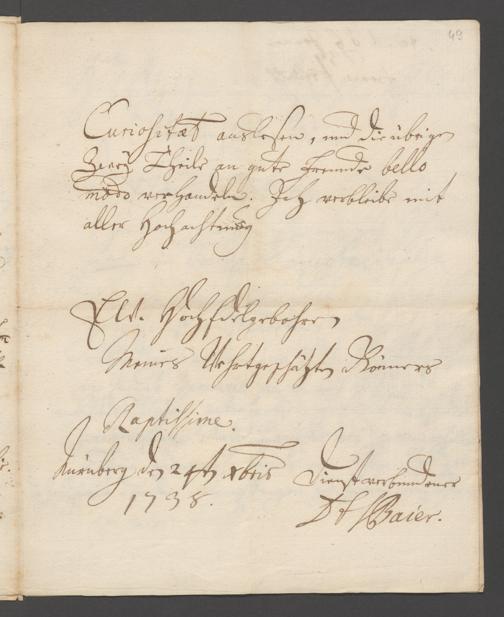 49
Curiositæt auslesen, und die übrigen
zwey Theile an gute Freunde bello
modo verhandeln. Ich verbleibe mit
aller Hochachtung
Ew. HochEdelgebohren
Meines Wehrtgeschäzten Gönners
Raptissime.
Nürnberg den 24ten Xbris
1738.
Dienstverbundener
Baier.